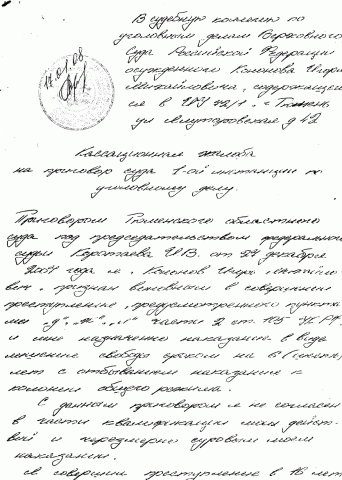 17.01.08
В судебную коллегию по
уголовным делам Верховного
Суда Российской Федерации
осужденного Кононова Игоря
Михайловича, содержащего
ся в г. Тюмень
ул д 42
Кассационная жалоба
на приговор суда 1-ой инстанции по
уголовному делу.
Приговором Тюменского областного
суда под председательством федерального
судьи от 24 декабря
года я, Кононов Игорь
вич, признан виновным в совершении
преступление, предусмотренного пункта
ми части 2 ст. 105 УК РФ
и мне назначено наказание в виде
лишение свободы сроком на
лет с отбыванием наказание в
колонии общего режима.
С данным приговором я не согласен
в части квалификации моих дейст-
вий и чрезмерно суровым моем
наказании.
Я совершил преступление в 16 лет